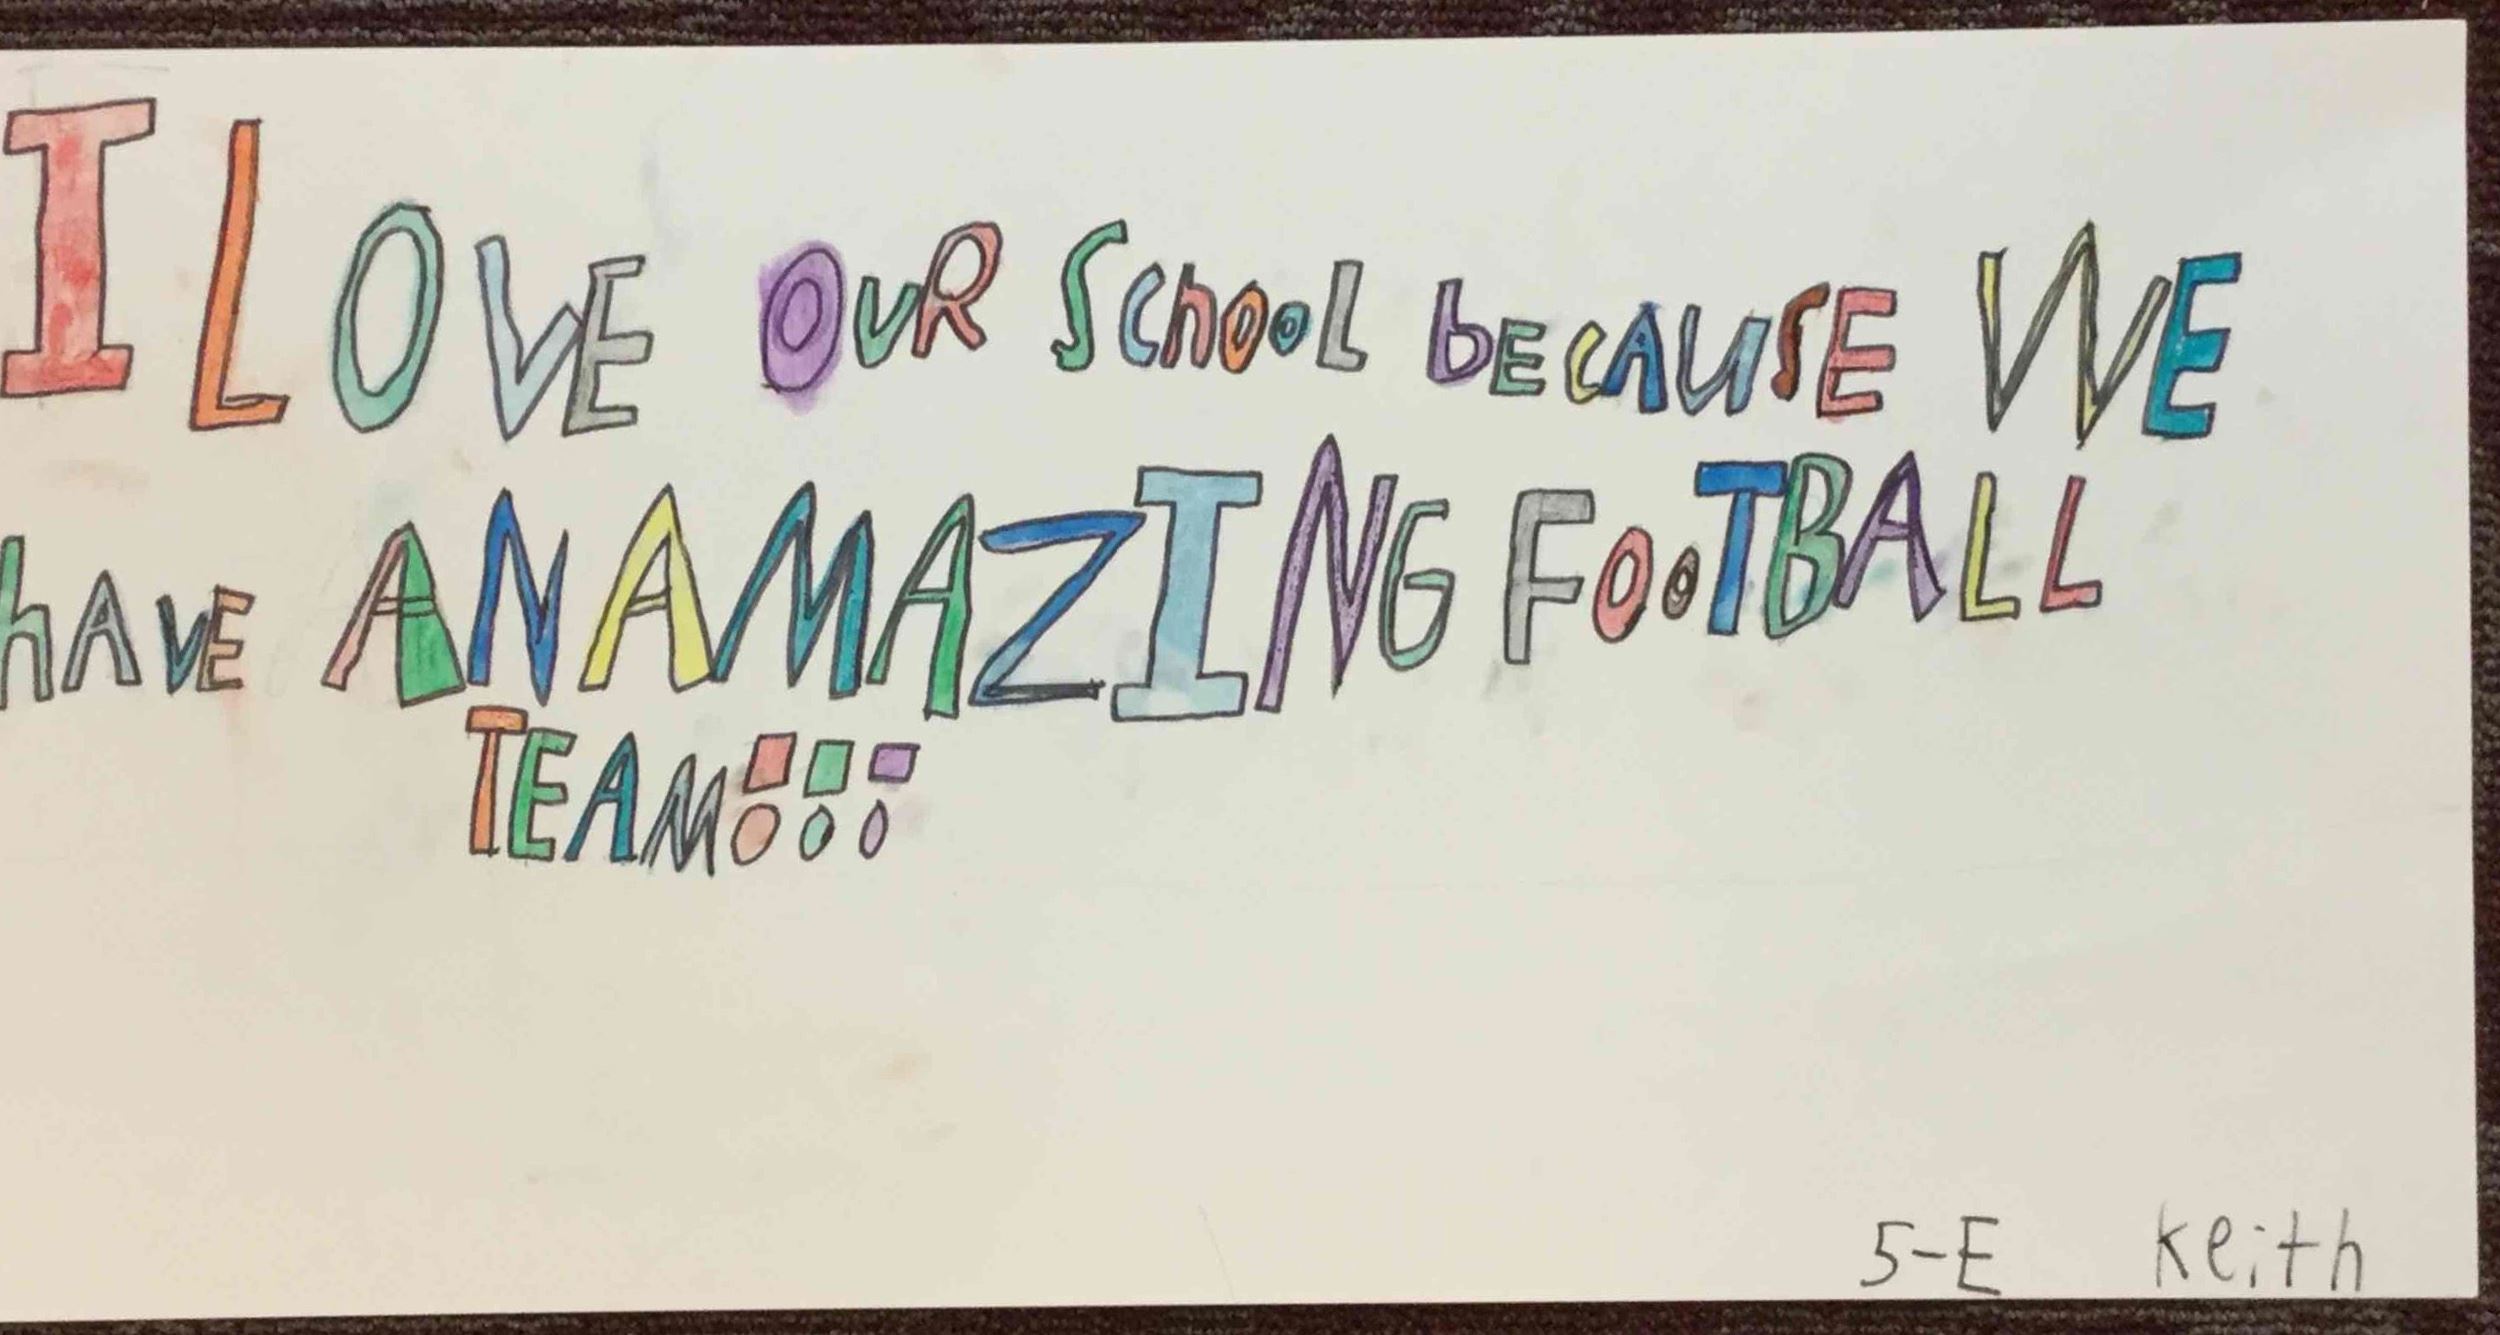 I LOVE OUR School bECAUSE WE
hAVE AN AMAZING FOOTBALL
TEAM!!!
5-E keith